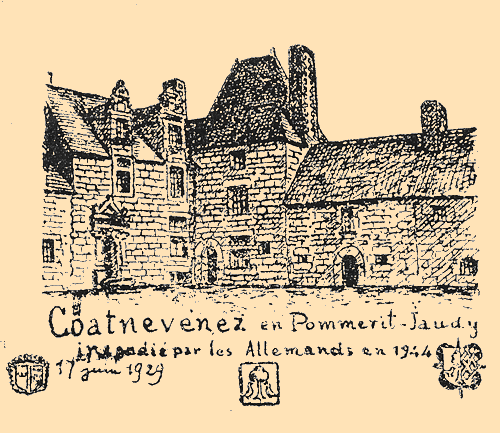 Coatnevenez en Pommerit-Jaudy
incendié par les Allemands en 1944
17 juin 1929